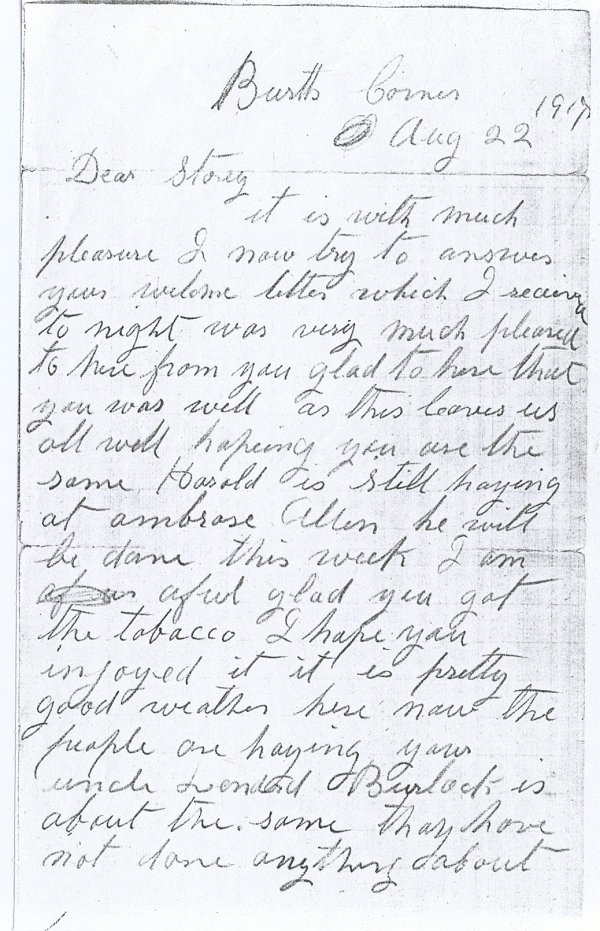 Burtts Corner
Aug 22 1917
Dear Storey
it is with much
pleasure I now try to answer
your welcome letter which I recieved
to night was very much pleased
to here from you glad to here that
you was well as this leaves us
all well hopeing you are the
same Harold is still haying
at ambrose Allen he will
be done this week I am
aful glad you got
the tobacco I hope you
injoyed it it is pretty
good weather here now the
people are haying your
uncle Burlock is
about the same thay have
not done anything about